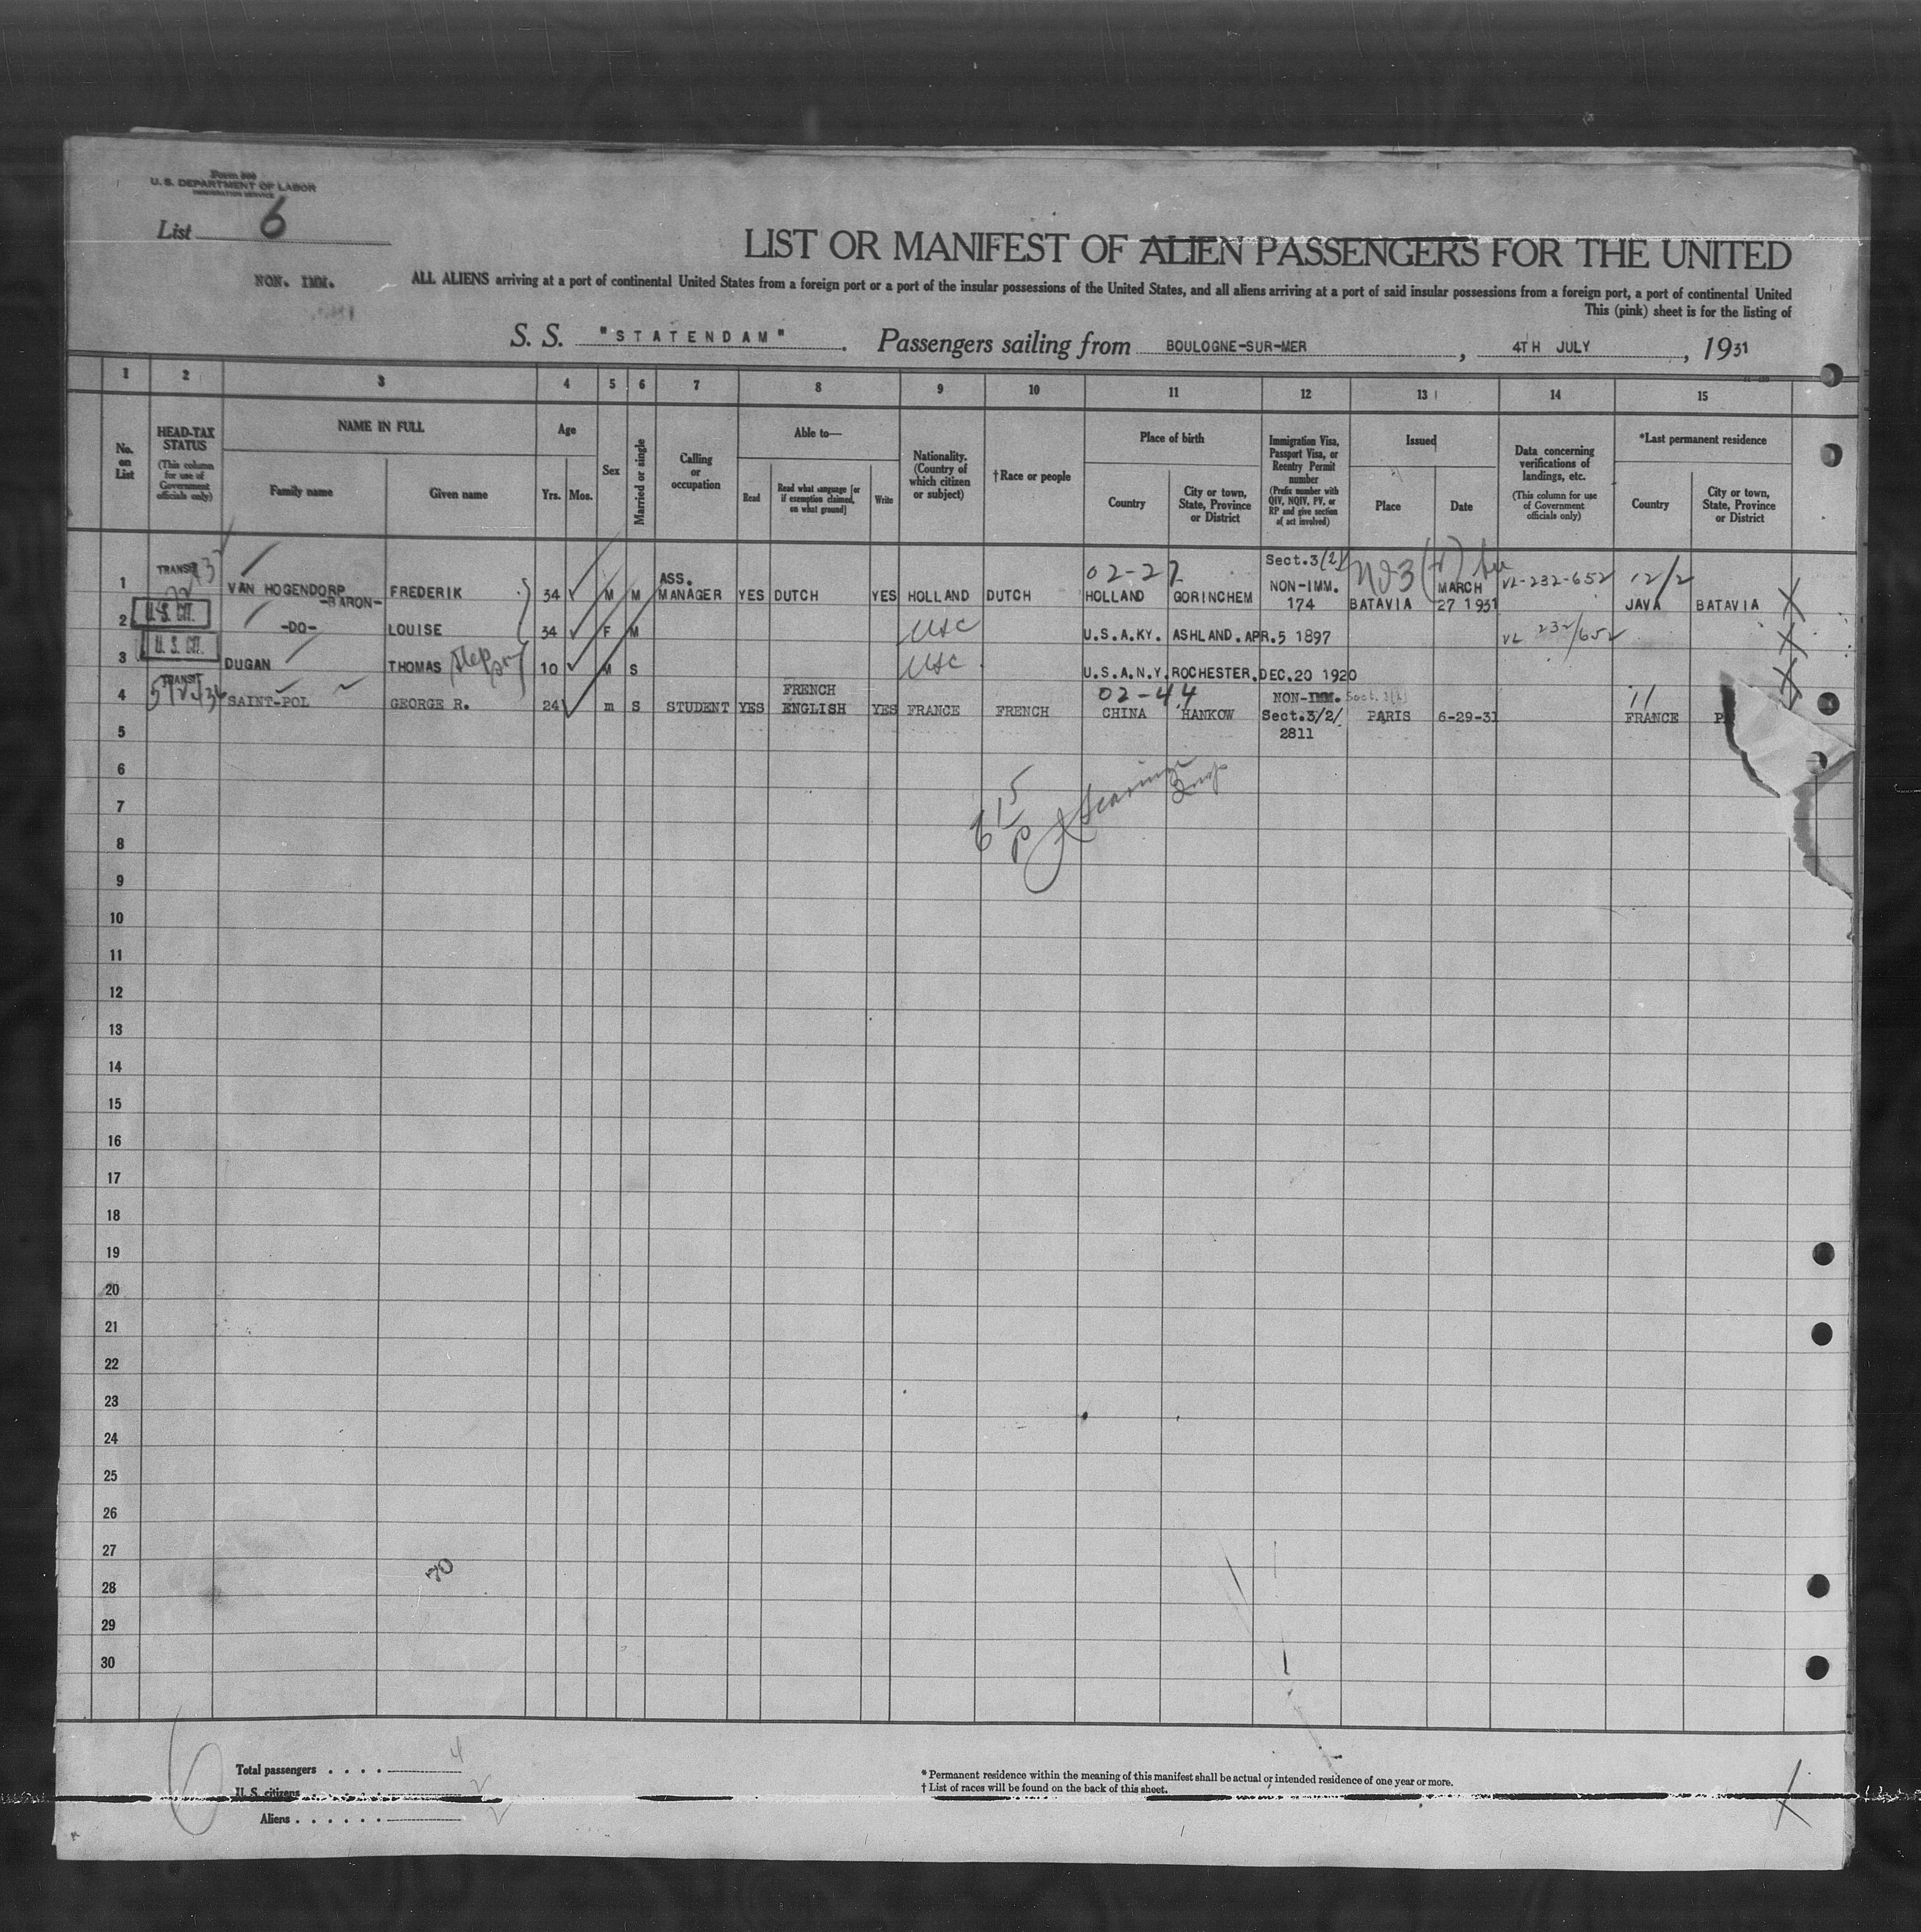 Form 500
U. S. DEPARTMENT OF LABOR
IMMIGRATION SERVICE
List 6
LIST OR MANIFEST OF ALIEN PASSENGERS FOR THE UNITED
NON. IMM.
ALL ALIENS arriving at a port of continental United States from a foreign port or a port of the insular possessions of the United States, and all aliens arriving at a port of said insular possessions from a foreign port, a port of continental United
This (pink) sheet is for the listing of
S. S. "STATENDAM". Passengers sailing from BOULOGNE-SUR-MER, 4TH JULY, 1931
1 2 3 4 5 6 7 8 9 10 11 12 13 14 15
No. on List
HEAD-TAX STATUS
(This column for use of Government officials only)
NAME IN FULL
Family name
Given name
Age
Yrs. Mos.
Sex
Married or single
Calling or occupation
Able to—
Read
Read what language [or if exemption claimed, on what ground]
Write
Nationality. (Country of which citizen or subject)
†Race or people
Place of birth
Country
City or town, State, Province or District
Immigration Visa, Passport Visa, or Reentry Permit number
(Prefix number with QIV, NQIV, PV, or RP and give section of act involved)
Issued
Place
Date
Data concerning verifications of landings, etc.
(This column for use of Government officials only)
*Last permanent residence
Country
City or town, State, Province or District
1 TRANSIT VAN HOGENDORP -BARON- FREDERIK 34 M M ASS. MANAGER YES DUTCH YES HOLLAND DUTCH 02-27 HOLLAND GORINCHEM Sect.3(2) NON-IMM. 174 BATAVIA MARCH 27 1931 VL-232-652 12/2 JAVA BATAVIA
2 U.S. CIT. -DO- LOUISE 34 F M USC U.S.A.KY. ASHLAND.APR.5 1897 VL 232/652
3 U.S. CIT. DUGAN THOMAS 10 M S USC U.S.A.N.Y. ROCHESTER.DEC.20 1920
4 TRANSIT SAINT-POL GEORGE R. 24 m S STUDENT YES FRENCH ENGLISH YES FRANCE FRENCH 02-44 CHINA HANKOW NON-IMM. Sect.3/2/ 2811 PARIS 6-29-31 11 FRANCE
5
6
7
8
9
10
11
12
13
14
15
16
17
18
19
20
21
22
23
24
25
26
27
28
29
30
Total passengers . . . . 4
U. S. citizens 2
Aliens . . . . . . 2
* Permanent residence within the meaning of this manifest shall be actual or intended residence of one year or more.
† List of races will be found on the back of this sheet.
6